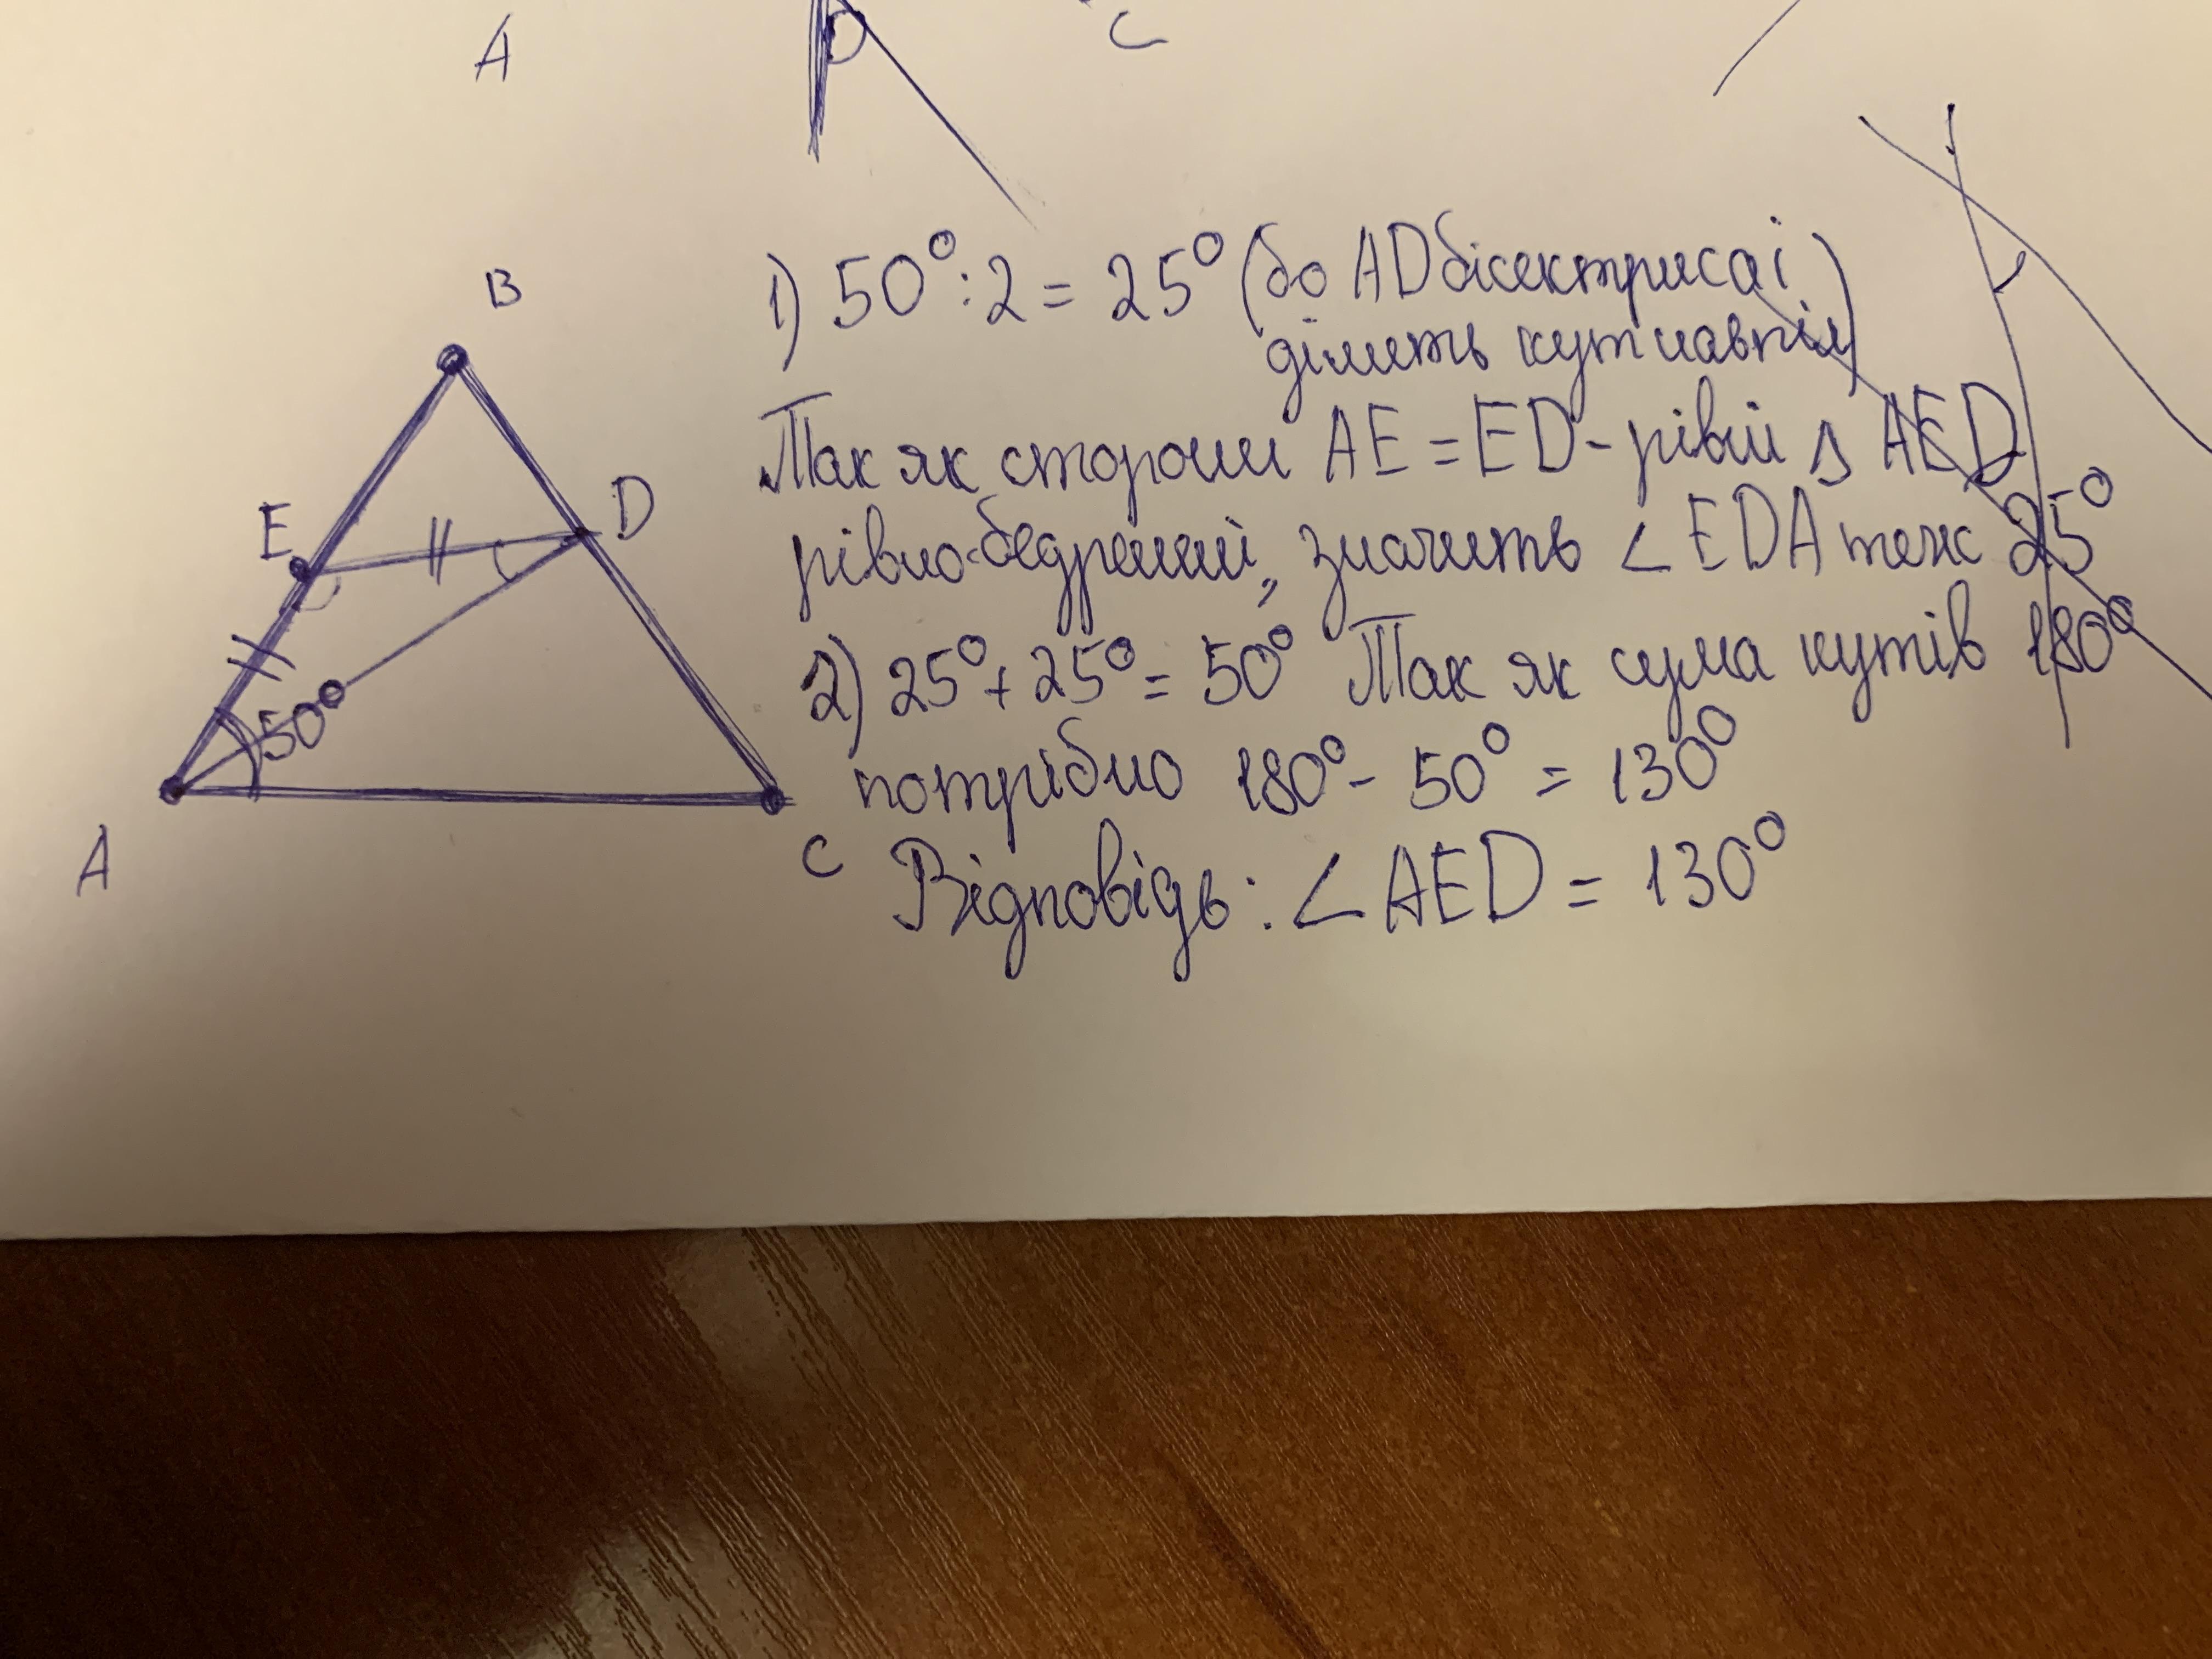 A
C
B
1) 50° : 2 = 25° (бо AD бісектриса і
ділить кут навпіл)
Так як сторони AE = ED - рівні Δ AED
рівно-бедрений, значить ∠ EDA теж 25°
2) 25° + 25° = 50° Так як сума кутів 180°
потрібно 180° - 50° = 130°
Відповідь: ∠ AED = 130°
E
D
50°
A
C